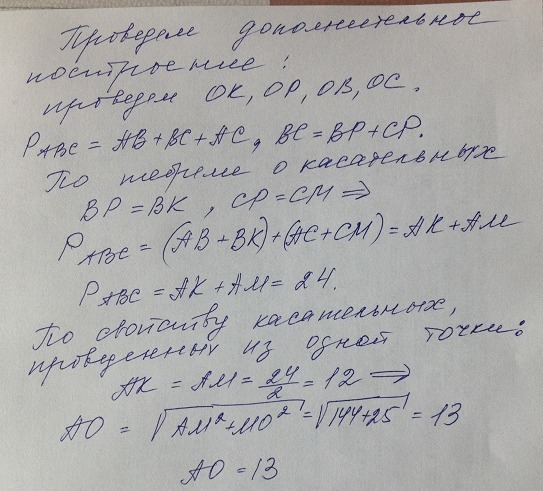 Проведем дополнительное
построение:
проведем OK, OP, OB, OC.
P_ABC = AB + BC + AC, BC = BP + CP.
По теореме о касательных
BP = BK, CP = CM ⇒
P_ABC = (AB + BK) + (AC + CM) = AK + AM
P_ABC = AK + AM = 24.
По свойству касательных,
проведенных из одной точки:
AK = AM = 24/2 = 12 ⇒
AO = √(AM² + MO²) = √(144 + 25) = 13
AO = 13